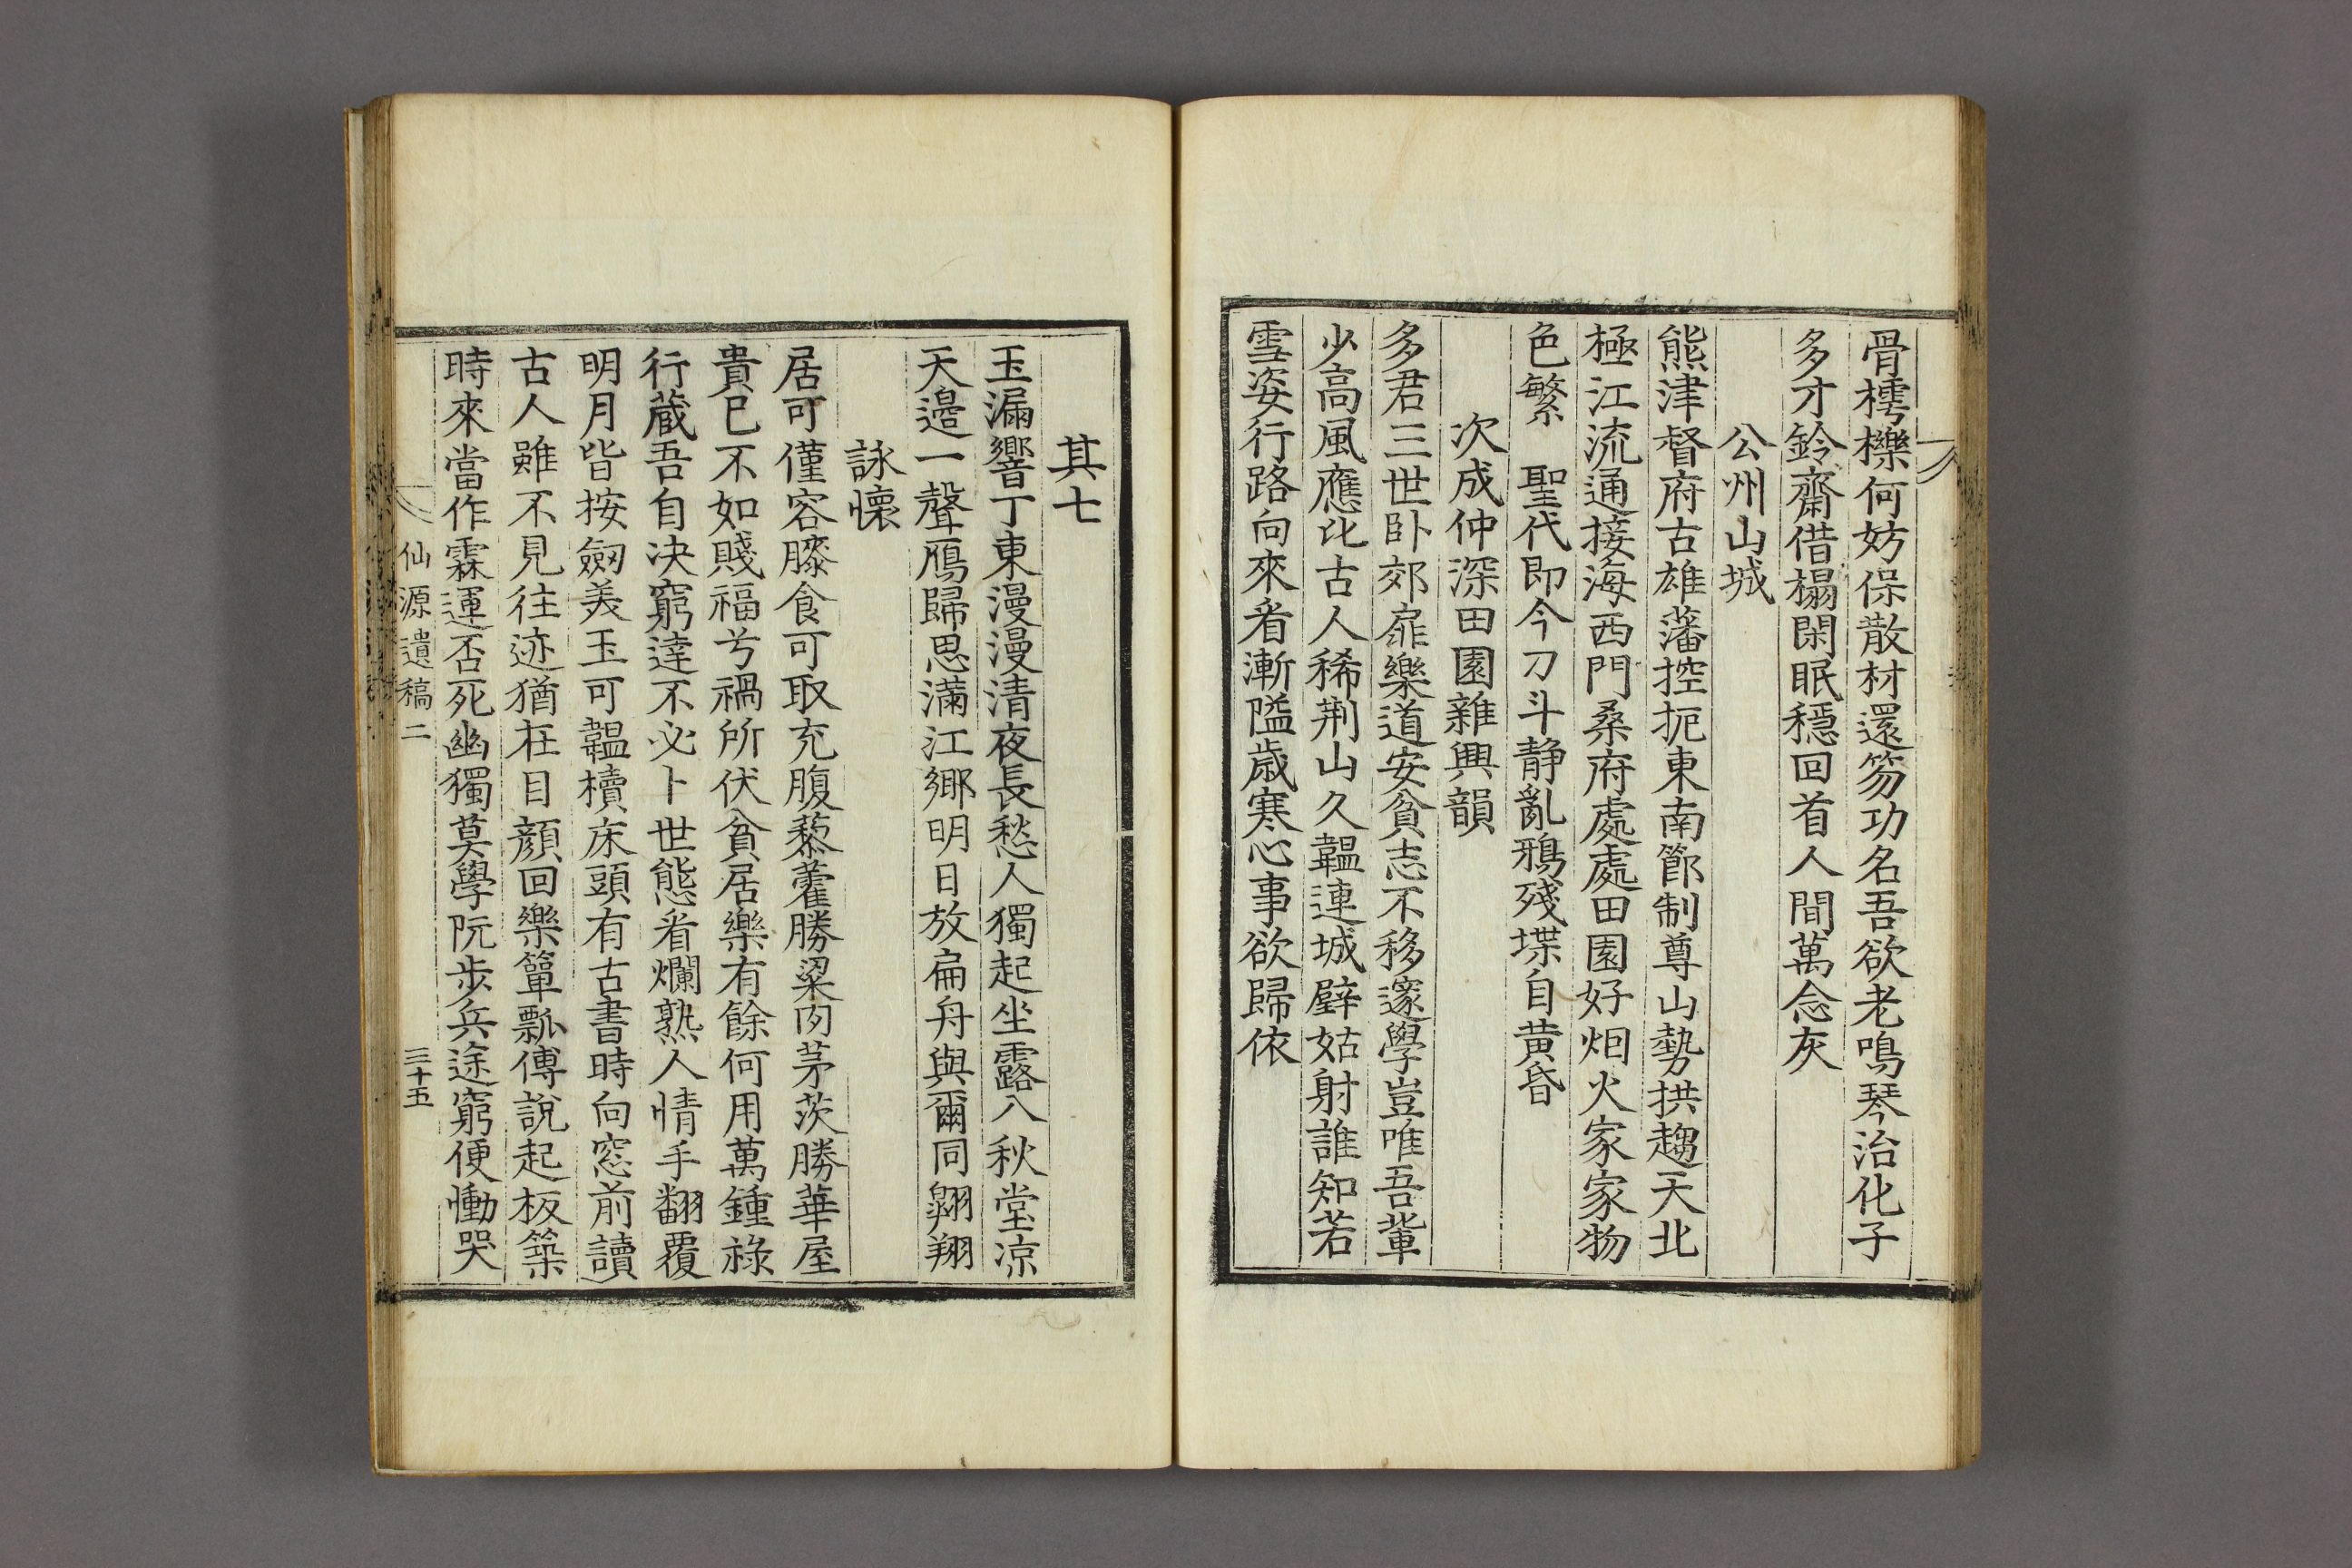 骨樗櫟何妨保散材還笏功名吾欲老鳴琴治化子
多才鈴齋借榻閑眠穩回首人間萬念灰
公州山城
熊津督府古雄藩控扼東南節制尊山勢拱趨天北
極江流通接海西門桑府處處田園好烟火家家物
色繁　聖代即今刀斗静亂鴉殘堞自黄昏
次成仲深田園雜興韻
多君三世卧郊扉樂道安貧志不移邃學豈唯吾軰
少高風應比古人稀荆山久韞連城璧姑射誰知若
雪姿行路向來看漸隘歳寒心事欲歸依
其七
玉漏響丁東漫漫清夜長愁人獨起坐露入秋堂凉
天邉一聲鴈歸思滿江鄉明日放扁舟與爾同翺翔
詠懷
居可僅容膝食可取充腹藜藿勝粱肉茅茨勝華屋
貴已不如賤福兮禍所伏貧居樂有餘何用萬鍾祿
行藏吾自决窮達不必卜世態看爛熟人情手翻覆
明月皆按劒美玉可韞櫝床頭有古書時向窓前讀
古人雖不見往迹猶在目顔回樂簞瓢傅說起板築
時來當作霖運否死幽獨莫學阮步兵途窮便慟哭
仙源遺稿二
三十五